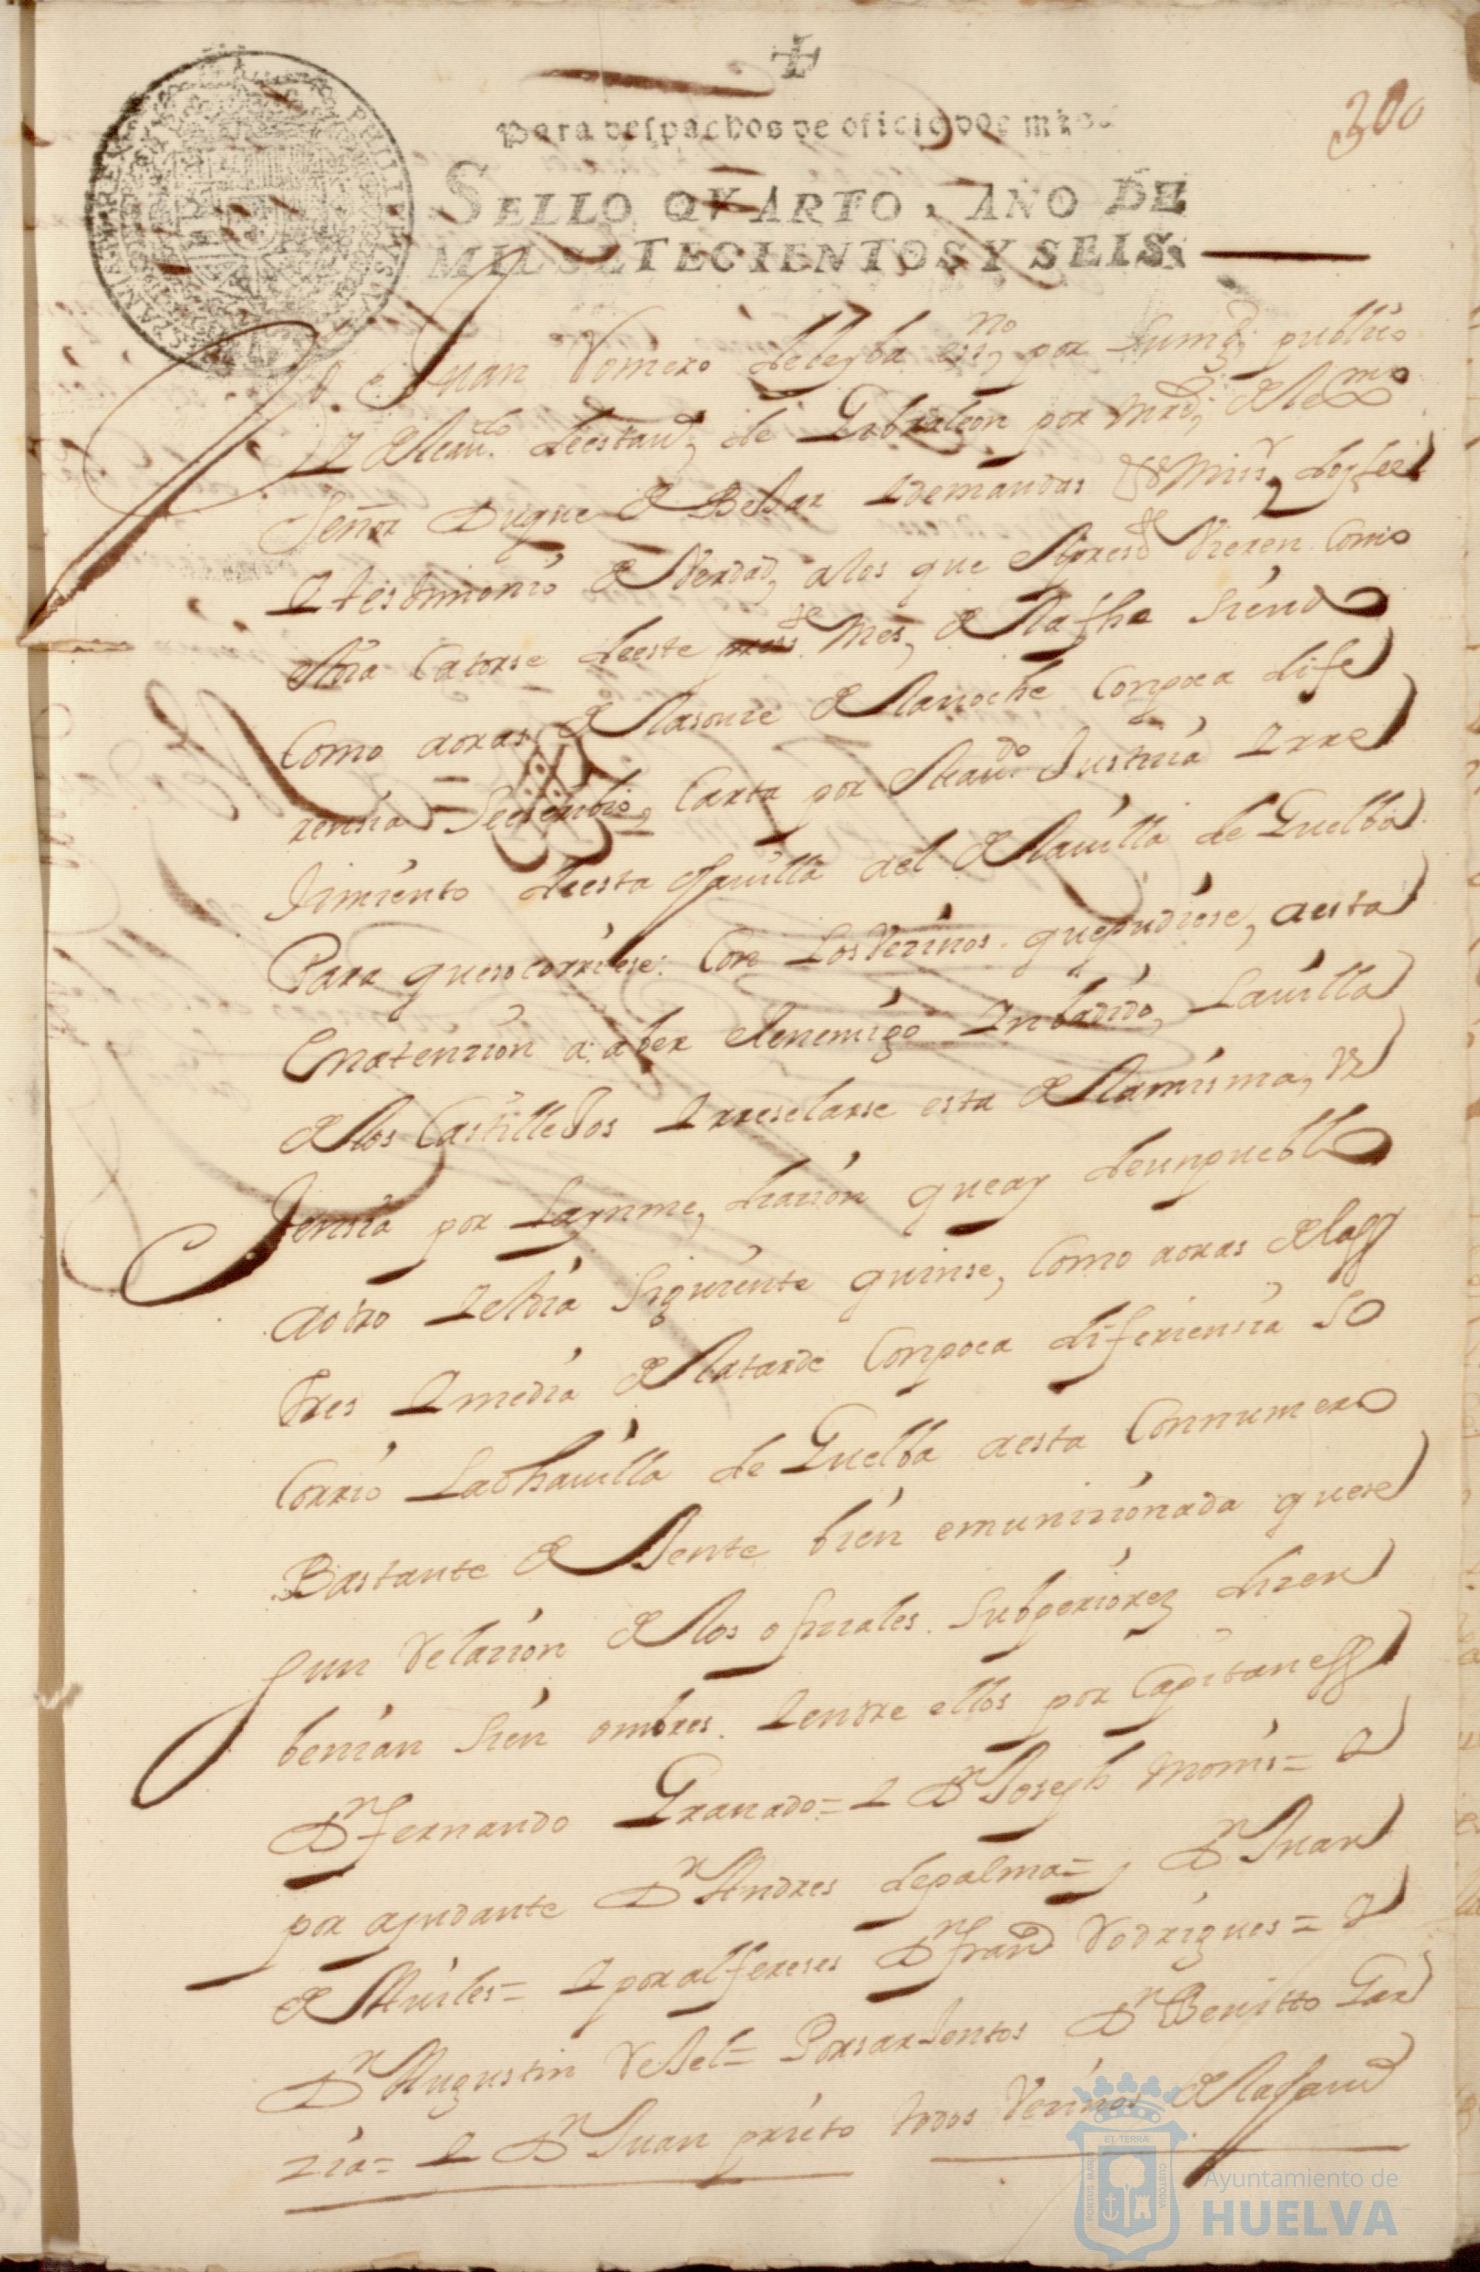 +
300
Para despachos de oficio dos mrs
SELLO QVARTO, AÑO DE
MIL SETECIENTOS Y SEIS.
PHILIPPVS V
Yo Juan Romero deleyba essno por Sumgd publico
Y del caudo deestaud de Gibraleon por mrd delexmo
Señor Duque de Bejar Y demandas doy fee
Y testimonio de Verdad, alos que el preste Vieren Como
eldia Catorse deeste preste Mes, de la fha siendo
Como aoras de lasonce de lanoche Conpoca dife
rensia Seescribio, Carta por elcaudo Justicia Y rre
Jimiento deesta dhauilla al de lauilla de Guelba
Para quesocorriese Con Los Vecinos quepudiese, aesta
Enatencion a aber elenemigo Ynbadido, Lauilla
de los Castillejos Y rreselarse esta de lamisma, Ve
Jensia por Laynme diacion queay deunpueblo
aotro Y eldia Siguiente quinse, Como aoras delass
tres Y media de latarde Conpoca diferiensia So
Corrio Ladhauilla de Guelba aesta Connumero
Bastante de Jente bien emunicionada quese
gun Relacion de los oficiales Subperiores dicen
benian Sien ombres Y entre ellos por Capitaness
Dn fernando Granado= Y Dn Joseph monis= Y
por ayudante Dn Andres depalma= y Dn Juan
de Auiles= Y por alfereses Dn francо Rodrigues= Y
Dn Augustin ReJel= Porsarjentos Dn Benitto Gar
cia= Y Dn Juan prieto todos Vecinos de ladhaud
PORTUS MARIS
ET TERRÆ
CUSTODIA
Ayuntamiento de
HUELVA